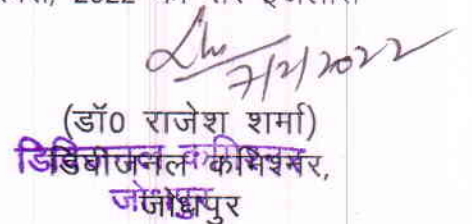 2022
7/2/2022
(डॉ0 राजेश शर्मा)
डिवीजनल कमिश्नर,
जोधपुर